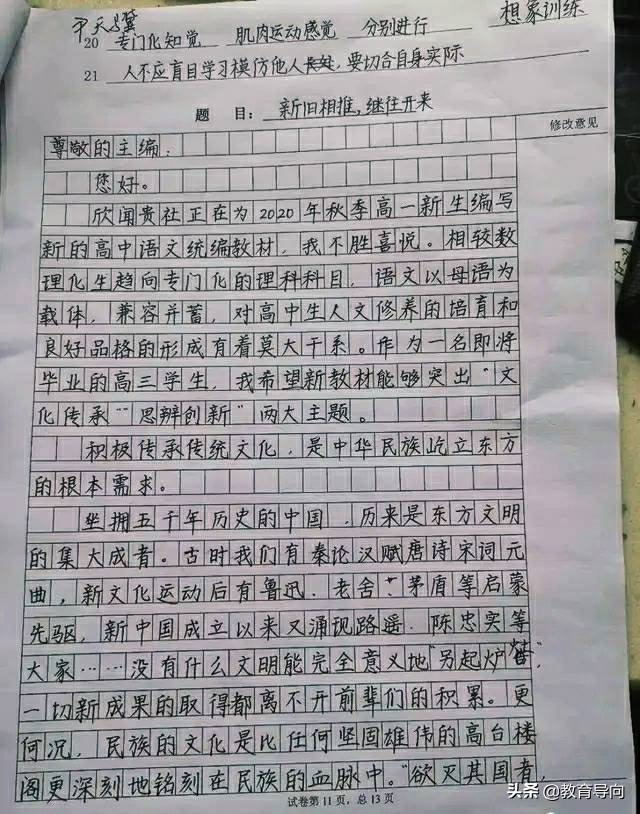 想象训练
20 专门化知觉 肌肉运动感觉 分别进行
21 人不应盲目学习模仿他人, 要切合自身实际
题 目: 新旧相推,继往开来
修改意见
尊敬的主编:
您好。
欣闻贵社正在为2020年秋季高一新生编写
新的高中语文统编教材,我不胜喜悦。相较数
理化生趋向专门化的理科科目,语文以母语为
载体,兼容并蓄,对高中生人文修养的培育和
良好品格的形成有着莫大干系。作为一名即将
毕业的高三学生,我希望新教材能够突出“文
化传承”“思辨创新”两大主题。
积极传承传统文化,是中华民族屹立东方
的根本需求。
坐拥五千年历史的中国,历来是东方文明
的集大成者。古时我们有秦论汉赋唐诗宋词元
曲,新文化运动后有鲁迅、老舍、茅盾等启蒙
先驱,新中国成立以来又涌现路遥、陈忠实等
大家……没有什么文明能完全意义地“另起炉灶”,
一切新成果的取得都离不开前辈们的积累。更
何况,民族的文化是比任何坚固雄伟的高台楼
阁更深刻地铭刻在民族的血脉中。“欲灭其国者,
试卷第11页,总13页
头条 @教育导向